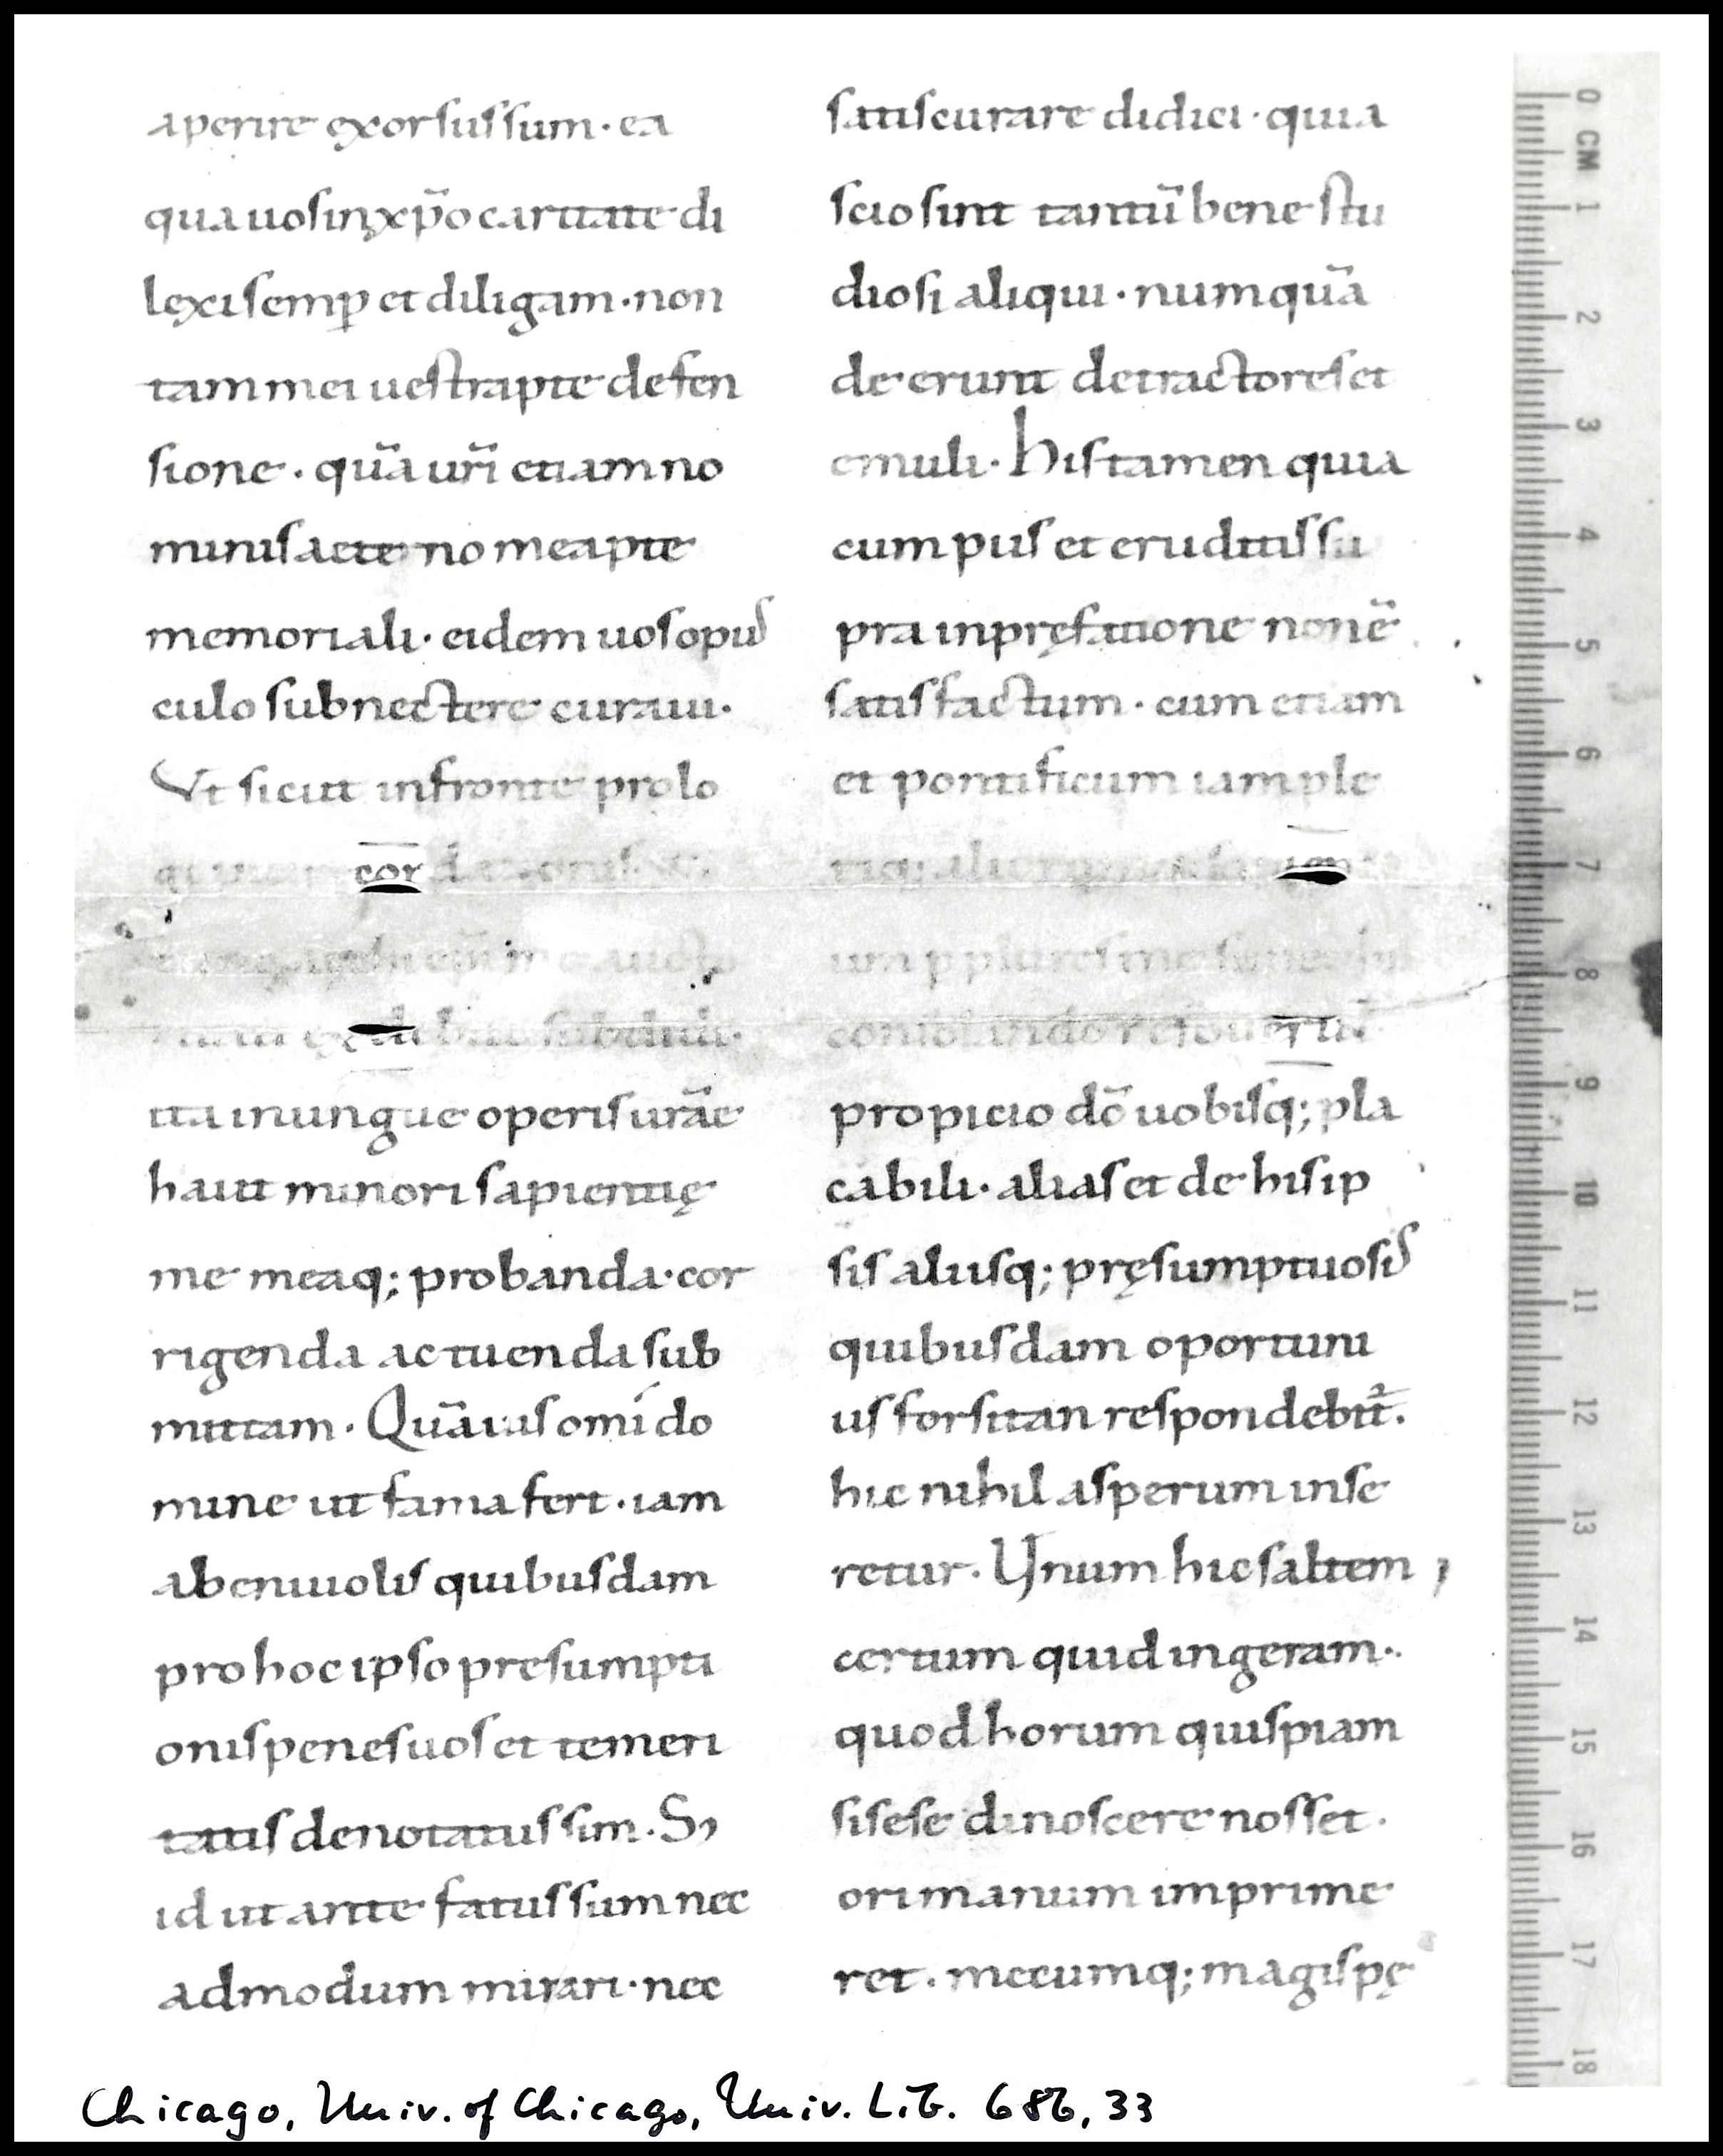 aperire exorsussum· ea
qua uos inxp̄o caritate di
lexi semp̱ et diligam· non
tam mei uestrapte defen
sione· quā ur̄i etiam no
minis acte no meapte
memoriali· eidem uos opus
culo subnectere curaui·
Ut sicut infronte prolo
cor
ita inungue operis ur̄ae
haut minori sapientię
me meaq; probanda· cor
rigenda ac tuenda sub
mittam· Quāuis omí do
mine ut fama fert· iam
abeniuolis quibusdam
pro hoc ipso presumpti
onis penes uos et temeri
tatis denotatus sim· S;
id ut ante fatus sum nec
admodum mirari· nec
satis curare didici· quia
scio sint tantū bene stu
diosi aliqui· numquā
de erunt detractores et
emuli· His tamen quia
cum piis et eruditis su
pra inpręfatione non ē
satisfactum· cum etiam
et pontificum iam ple
um p plures me
refouerint
propicio dō uobisq; pla
cabili· alias et de his ip
sis aliisq; pręsumptuosis
quibusdam oportuni
us forsitan respondebit̄·
hic nihil asperum inse
retur· Unum hic saltem
certum quid ingeram·
quod horum quispiam
si sese dinoscere nosset·
ori manum imprime
ret· mecumq; magis pę
0 CM 1 2 3 4 5 6 7 8 9 10 11 12 13 14 15 16 17 18
Chicago, Univ. of Chicago, Univ. Lib. 686, 33